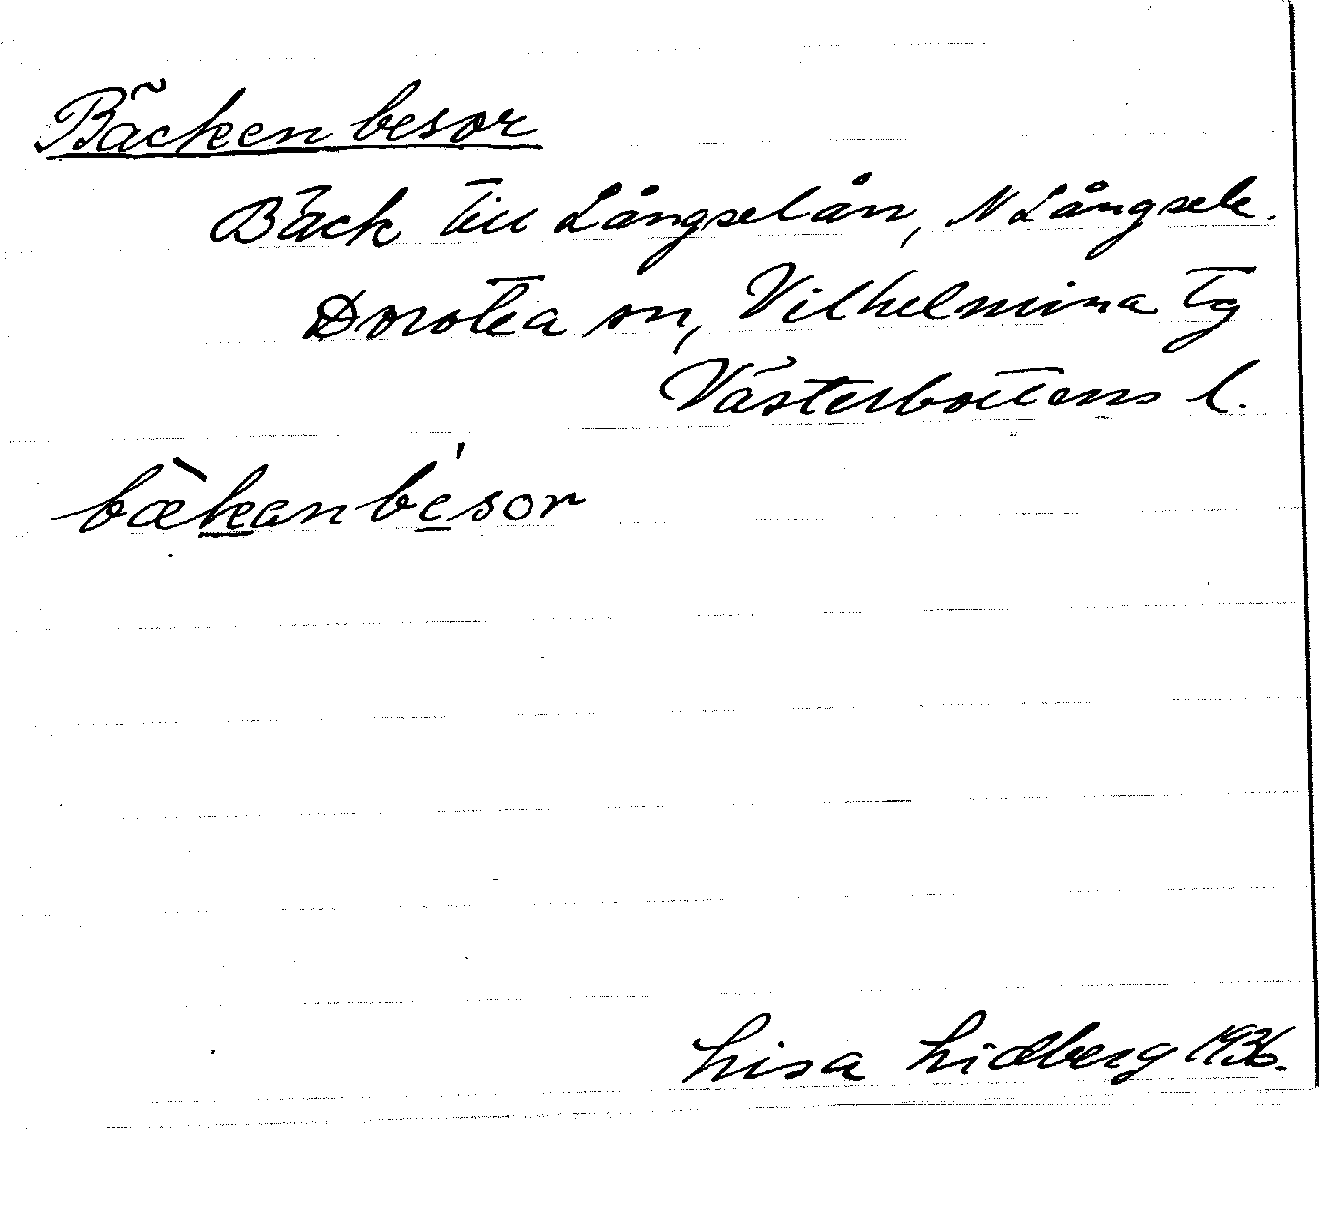 Bäcken besor
Bäck till Långselån, N Långsele.
Dorotea sn, Vilhelmina tg
Västerbottens l.
bæ̀kanbésor
Lisa Lidberg 1936.